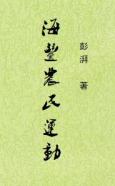 海豐農民運動
彭湃 著